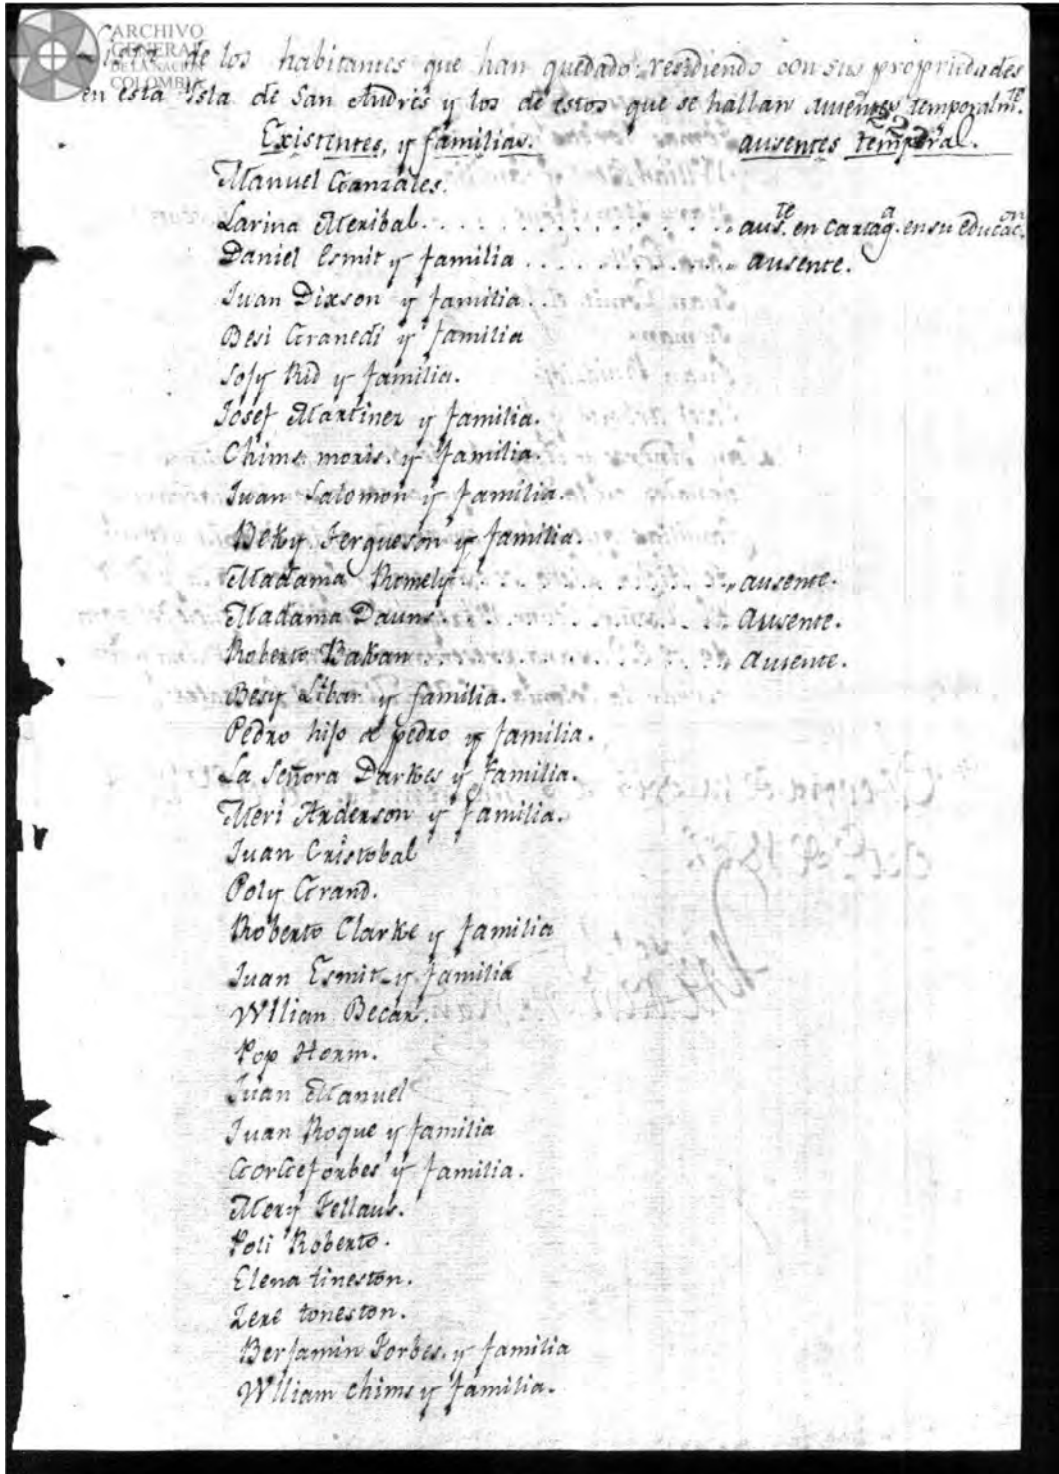 ARCHIVO
GENERAL
DE LA NACIÓN
COLOMBIA
Lista de los habitantes que han quedado residiendo con sus propriedades
en esta Ysla de San Andres y los de estos que se hallan ausentes temporalmte.
222
Existentes, y familias. ausentes temporal.
Manuel Gonzales.
Larina Meribal. . . . . . . . . . . . . . . auste. en Cartaga. en su educacon.
Daniel Esmit y familia . . . . . . . . . ausente.
Juan Dixson y familia . .
Besi Granedi y familia
Sofy Rid y familia.
Josef Martinez y familia.
Chims moris. y familia.
Juan Salomon y familia.
Beky Ferqueson y familia.
Madama Romely . . . . . . . . . . . ausente.
Madama Dauns. . . . . . . . . . . . Ausente.
Roberto Bakan . . . . . . . . . . . . Ausente.
Besy Libar y familia.
Pedro hijo de pedro y familia.
La Señora Darkes y familia.
Meri Anderson y familia.
Juan Cristobal
Poly Grand.
Roberto Clarke y familia
Juan Esmit y familia
Wllian Becar.
Pop Horm.
Juan Manuel
Juan Roque y familia
GorGeforbes y familia.
Mery Fellaus.
Poli Roberto.
Elena lineston.
Zere toneston.
Benjamin Forbes. y familia
Wlliam chims y familia.